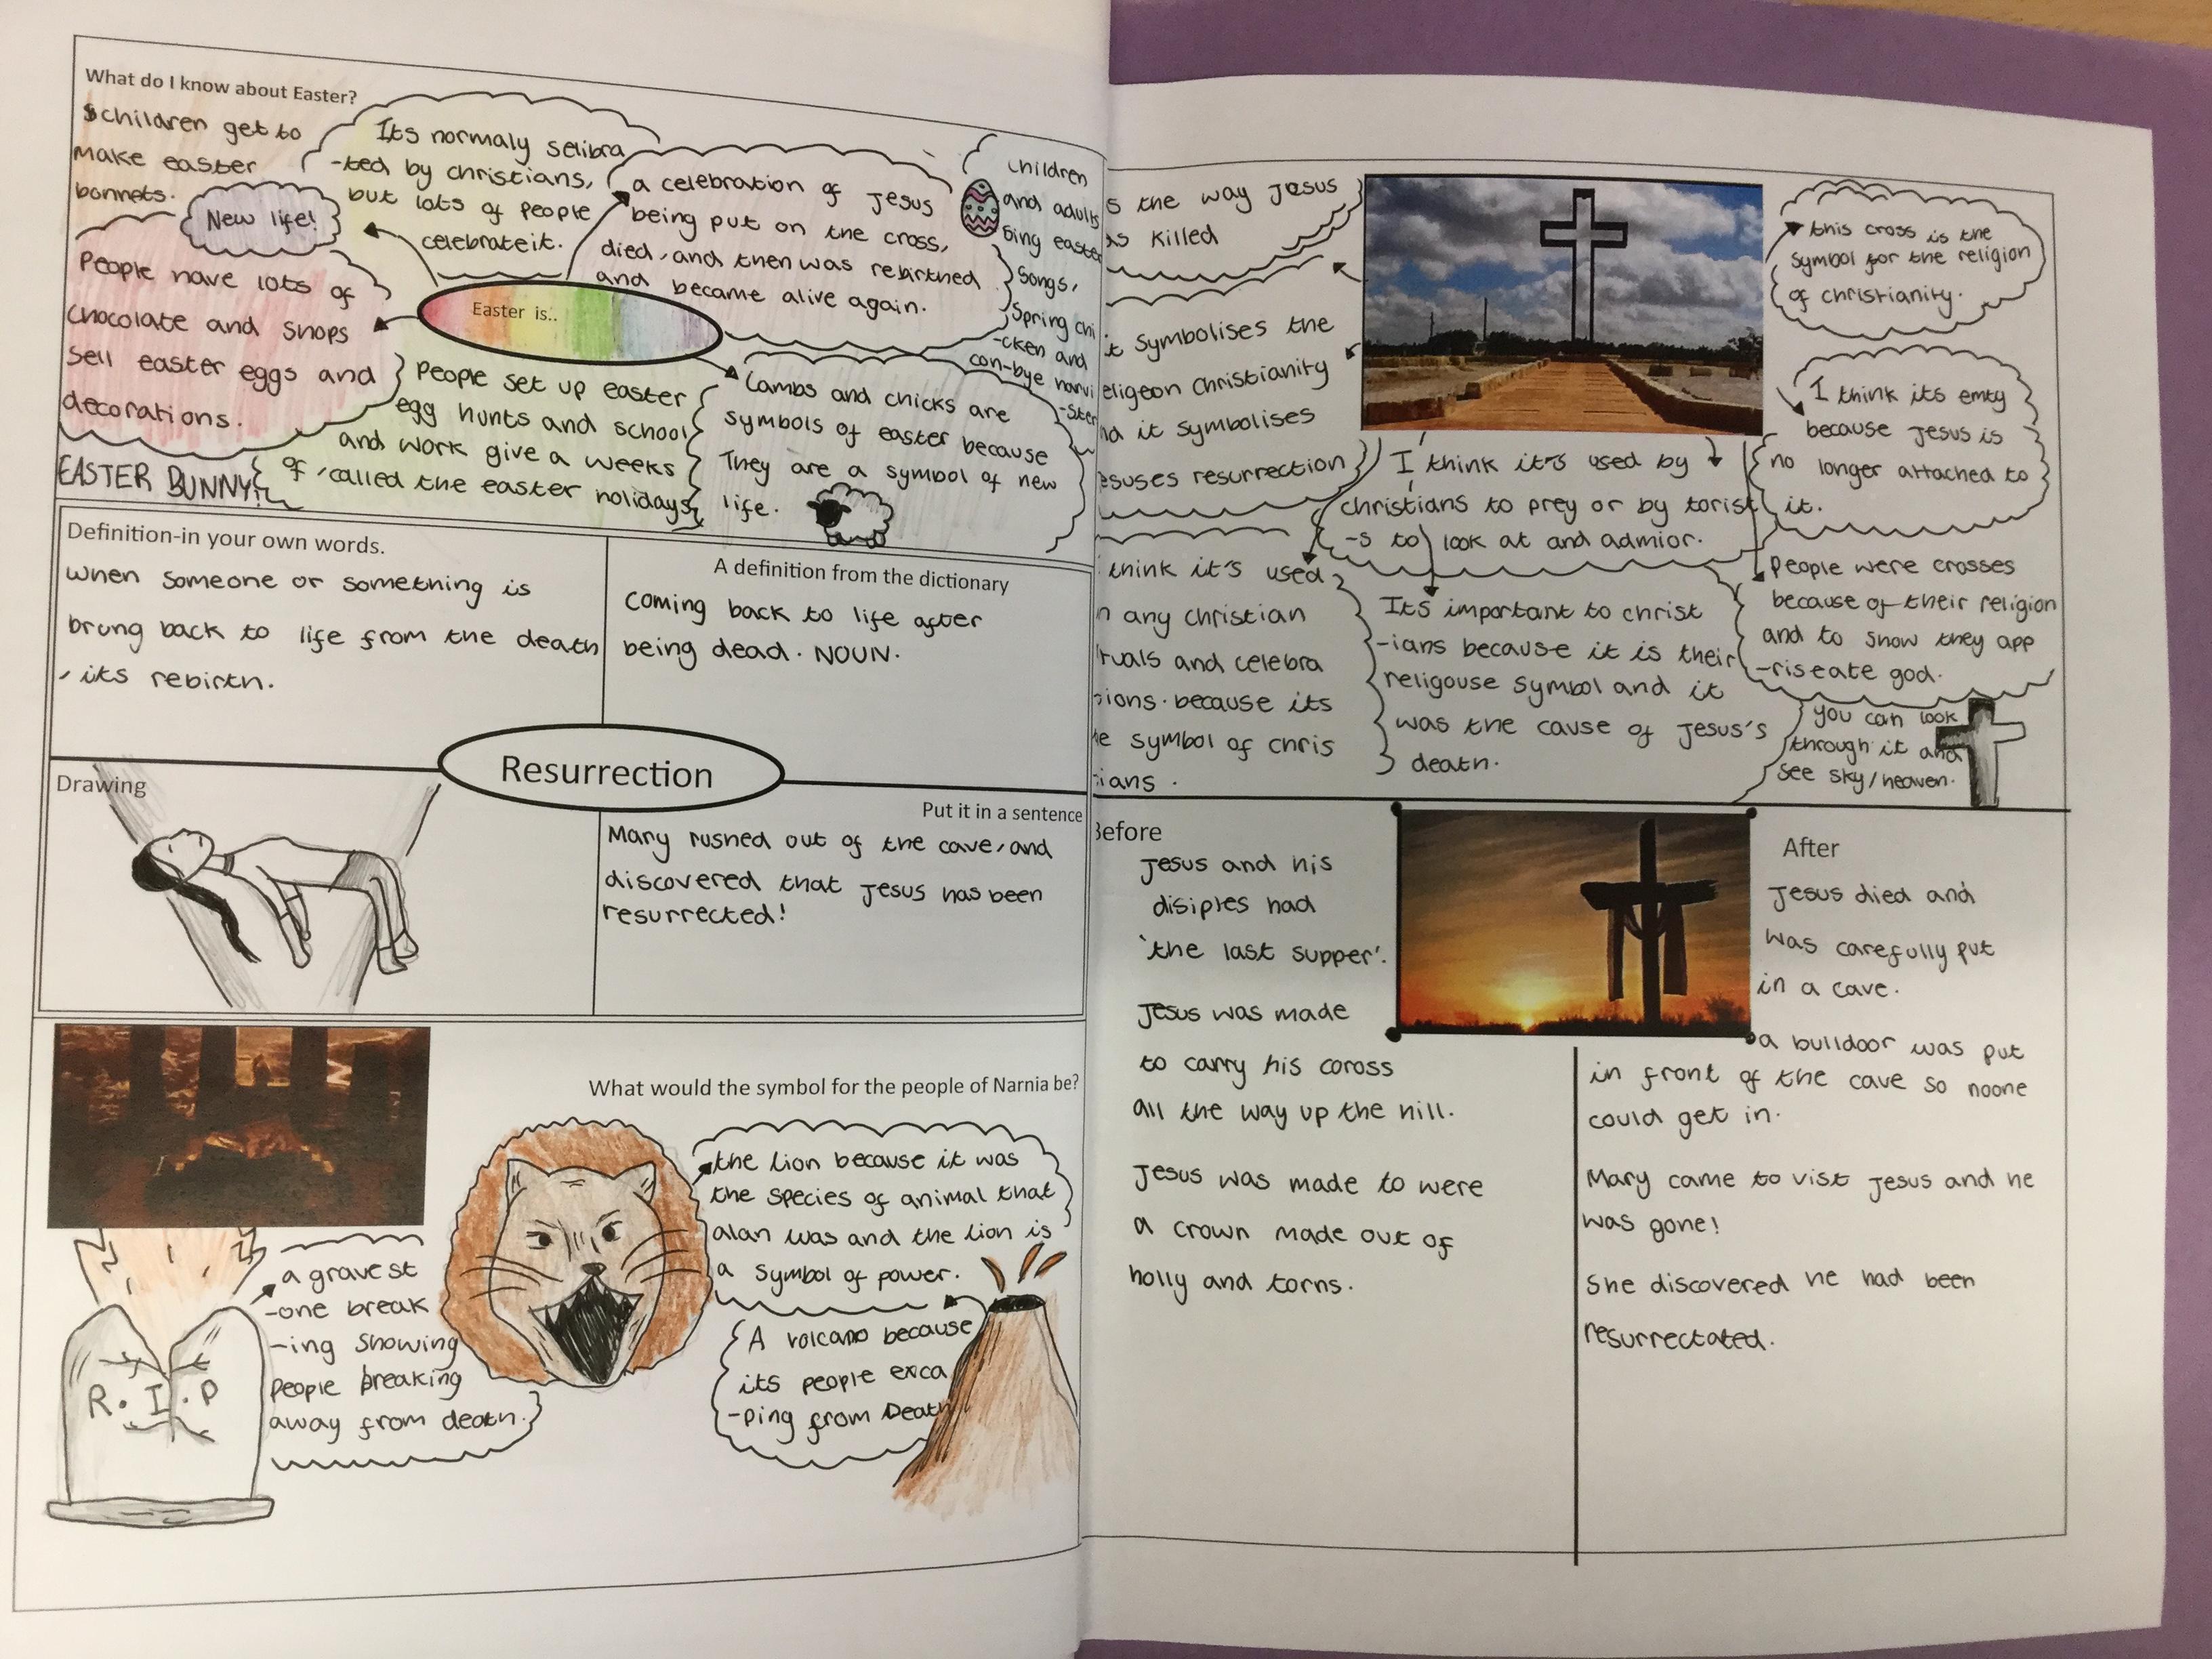 What do I know about Easter?
children get to
make easter
bonnets.
New life!
Its normaly selibra
-ted by christians,
but lots of people
celebrate it.
a celebration of Jesus
being put on the cross,
died, and then was rebirthed
and became alive again.
children
and adults
sing easter
songs,
Spring chi
-cken and
con-bye narvi
-ster
People have lots of
chocolate and shops
sell easter eggs and
decorations.
Easter is..
People set up easter
egg hunts and school
and work give a weeks
of, called the easter holidays
Lambs and chicks are
symbols of easter because
They are a symbol of new
life.
EASTER BUNNY!
Definition-in your own words.
when someone or something is
brung back to life from the death
, its rebirth.
A definition from the dictionary
Coming back to life after
being dead. NOUN.
Resurrection
Drawing
Put it in a sentence
Mary rushed out of the cave, and
discovered that Jesus has been
resurrected!
What would the symbol for the people of Narnia be?
the lion because it was
the species of animal that
alan was and the lion is
a symbol of power.
a gravest
-one break
-ing showing
people breaking
away from death.
R.I.P
A volcano because
its people exca
-ping from Death
s the way Jesus
as killed
it symbolises the
eligeon Christianity
nd it symbolises
esuses resurrection
this cross is the
symbol for the religion
of christianity.
I think its emty
because Jesus is
no longer attached to
it.
I think it's used by
christians to prey or by torist
-s to look at and admior.
think it's used
n any christian
ruals and celebra
ions. because its
he symbol of chris
ians.
Its important to christ
-ians because it is their
religouse symbol and it
was the cause of Jesus's
death.
People were crosses
because of their religion
and to show they app
-riseate god.
you can look
through it and
see sky/heaven.
Before
Jesus and his
disiples had
'the last supper'.
Jesus was made
to carry his coross
all the way up the hill.
Jesus was made to were
a crown made out of
holly and torns.
After
Jesus died and
was carefully put
in a cave.
a bulldoor was put
in front of the cave so noone
could get in.
Mary came to vist Jesus and he
was gone!
She discovered he had been
resurrectated.